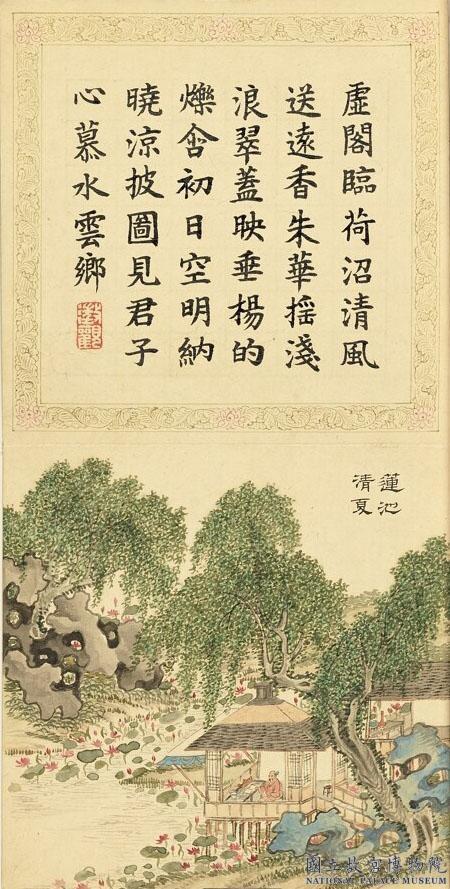 虛閣臨荷沼清風
送遠香朱華搖淺
浪翠蓋映垂楊的
爍含初日空明納
曉涼披圖見君子
心慕水雲鄉
蓮池
清夏
國立故宮博物院
NATIONAL PALACE MUSEUM